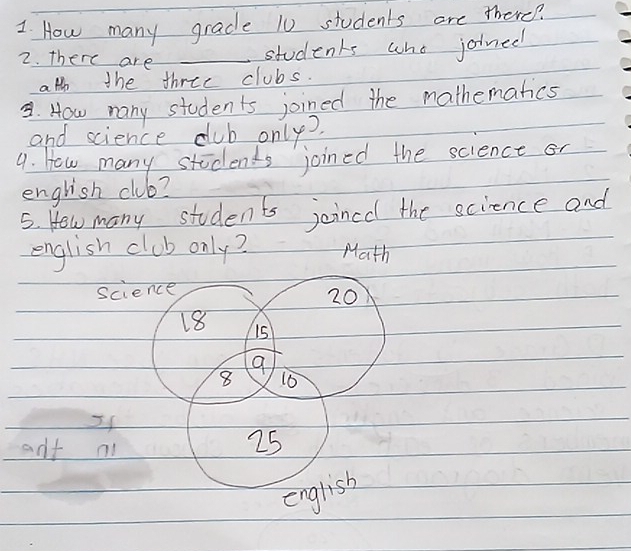 1. How many grade 10 students are there?
2. There are ______ students who joined
all the three clubs.
3. How many students joined the mathematics
and science club only?
4. How many students joined the science or
english club?
5. How many students joined the science and
english club only?
Math
Science
20
18
15
9
8
10
25
english